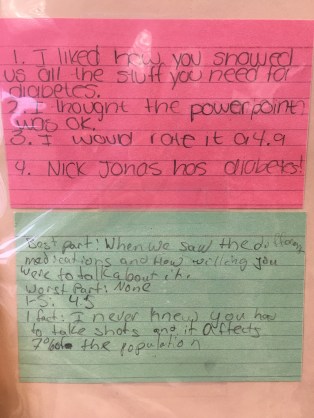 1. I liked how you showed
us all the stuff you need for
diabetes.
2. I thought the powerpoint
was ok.
3. I would rate it a 4.9
4. Nick Jonas has diabetes!
Best part: When we saw the
medications and how willing you
were to talk about it.
Worst Part: None
1-5: 4.5
1 fact: I never knew you had
to take shots and it affects
7% the population